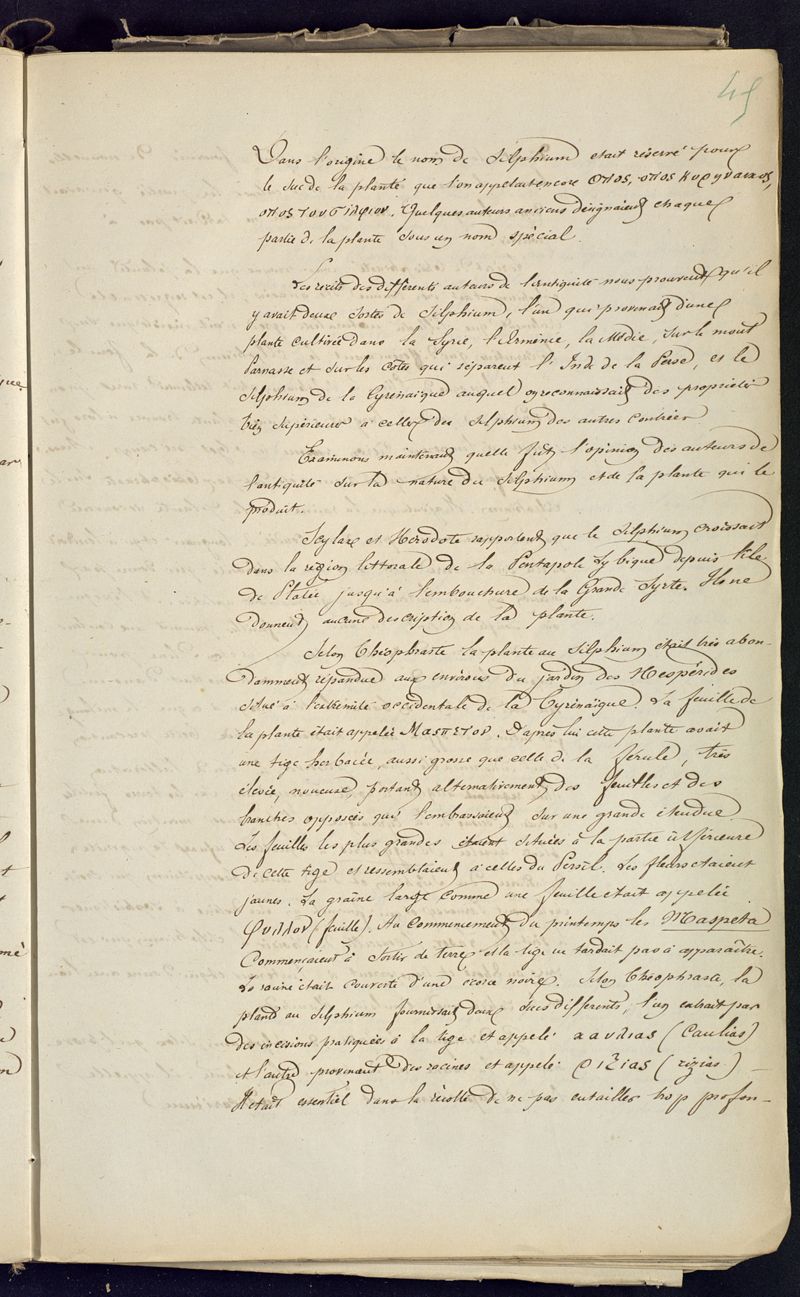 45
Dans l'origine le nom de Silphium etait réservé pour
le suc de la plante que l'on appelait encore οπος, οπος κυρηναικος,
οπος του σιλφιου. Quelques auteurs anciens désignaient chaque
partie de la plante sous un nom spécial.
Les récits des différents auteurs de l'antiquité nous prouvent qu'il
y avait deux sortes de Silphium, l'un qui provenait d'une
plante cultivée dans la Syrie, l'Arménie, la Médie, sur le mont
Parnasse et sur les côtes qui séparent l'Inde de la Perse, et le
Silphium de la Cyrénaïque auquel on reconnaissait des propriétés
bien supérieures à celles des Silphium des autres contrées
Examinons maintenant quelle fut l'opinion des auteurs de
l'antiquité sur la nature du Silphium et de la plante qui le
produit.
Scylax et Hérodote rapportent que le Silphium croissait
dans la région littorale de la Pentapole Lybique depuis l'île
de Platée jusqu'à l'embouchure de la Grande Syrte. Ils ne
donnent aucune description de la plante.
Selon Théophraste la plante au Silphium était très abon-
damment répandue aux environs du jardin des Hespérides
situé à l'extrémité occidentale de la Cyrénaïque. La feuille de
la plante était appelée Μασπετον. D'après lui cette plante avait
une tige herbacée, aussi grosse que celle de la férule, très
élevée, noueuse, portant alternativement des feuilles et des
branches opposées qui l'embrassaient sur une grande étendue.
Les feuilles les plus grandes étaient situées à la partie inférieure
de cette tige et ressemblaient à celles du Persil. Les fleurs étaient
jaunes. La graine large comme une feuille était appelée
φυλλον (feuille). Au commencement du printemps les Maspeta
commençaient à sortir de terre et la tige ne tardait pas à apparaître.
La racine était couverte d'une écorce noire. Selon Théophraste, la
plante au Silphium fournissait deux sucs différents, l'un extrait par
des incisions pratiquées à la tige et appelé καυλιας (Caulias)
et l'autre provenant des racines et appelé ριζιας (rizias) —
Il était essentiel dans la récolte de ne pas entailler trop profon-